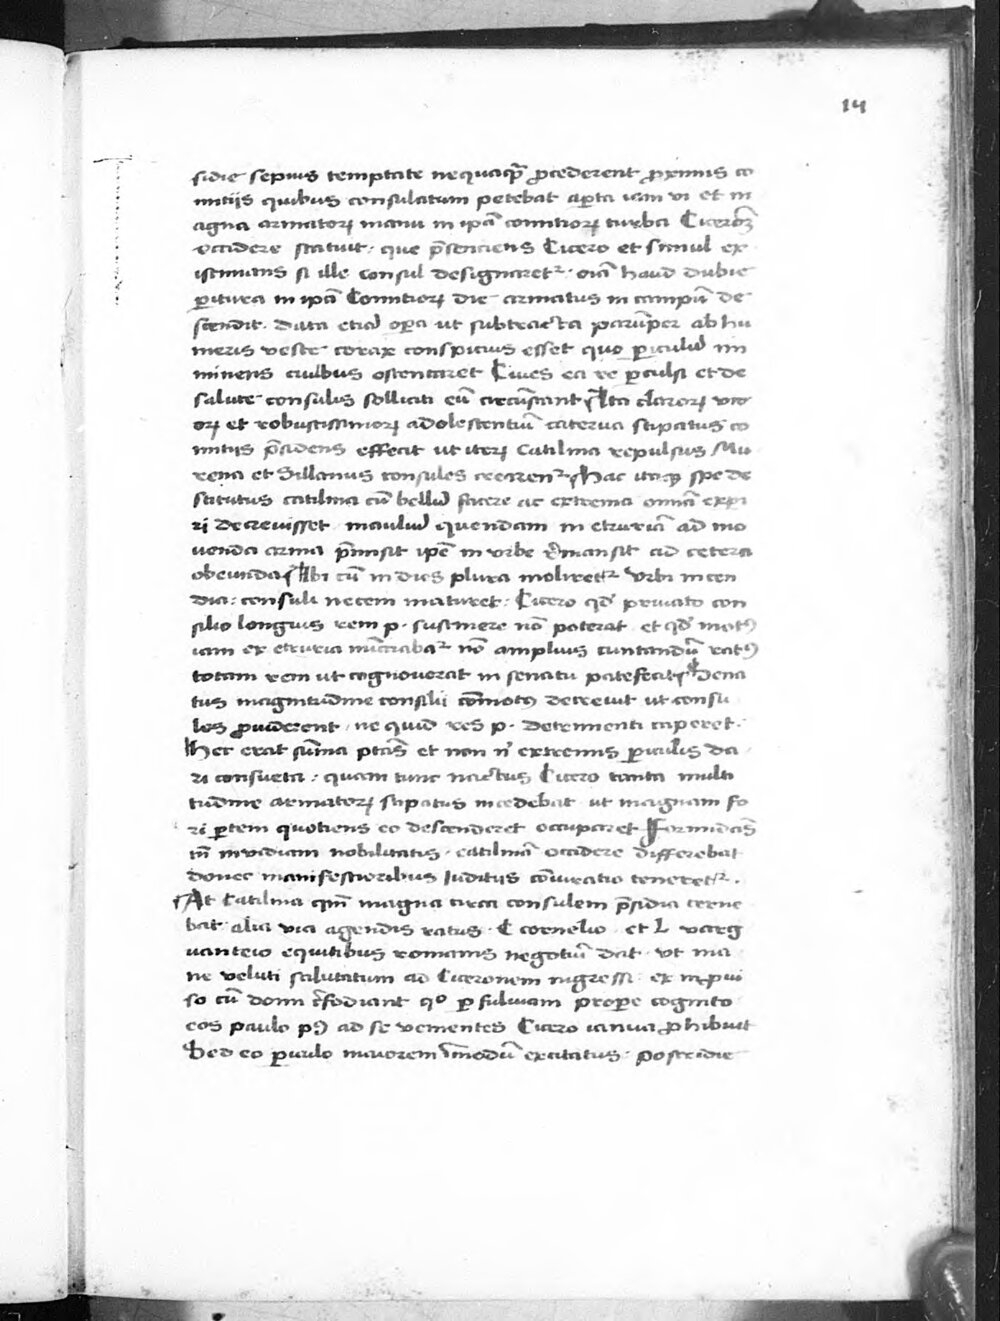 14
sidie sepius temptate nequaqᷓ ꝓcederent ꝓximis co
mitijs quibus consulatum petebat aꝑta iam ui et m
agna armatoꝝ manu in ipā comitioꝝ turba Ciceronē
occidere statuit· que p̄sentiens Cicero et simul ex
istimans si ille consul designaret᷑· oīa haud dubie
ꝑitura in ipā Comitioꝝ die armatus in campū de
scendit· data etiā oꝑa ut subtracta parūper ab hu
meris veste torax conspicius esset quo ꝑiculū im
minens ciuibus ostentaret Ciues ea re ꝑculsi et de
salute consulis solliciti eū circūstant Ita claroꝝ vir
oꝝ et robustissimoꝝ adolescentiū caterua stipatus co
mitijs p̄sidens effecit ut iteꝝ Catilina repulsus Mu
rena et Sillanus consules crearen᷑ Hac itaqꝫ spe de
stitutus catilina cū bellū facere ac extrema omīa expi
ri decreuisset mauliū quendam in etruriā ad mo
uenda arma p̄misit ipē in vrbe ꝑmansit ad cetera
obeunda Ibi cū in dies plura moliret᷑ vrbi incen
dia: consuli necem maturet· Cicero qd̄ priuato con
silio longius rem p· sustinere nō poterat et qd̄ motꝰ
iam ex etruria nūtiaba᷑ nō amplius cuntandū ratꝰ
totam rem ut cognouerat in senatu patefecit Sena
tus magnitudine consilii cōmotꝰ decreuit ut consu
les ꝓuiderent ne quid res p· detrimenti caperet·
Hec erat sūma ptās et non nī extremis ꝑiculis da
ri consueta· quam tunc nactus Cicero tanta multi
tudine armatoꝝ stipatus incedebat ut magnam fo
ri ꝑtem quotiens eo descenderet occuparet Formidās
tn̄ inuidiam nobilitatis· catilinā occidere differebat
donec manifestioribus Inditijs cōiuratio teneret᷑·
At Catilina qm̄ magna circa consulem p̄sidia cerne
bat alia via agendis ratus· C cornelio et L varg
uanteio equitibus romanis negotiū dat· vt ma
ne veluti salutatum ad Ciceronem ingressi· ex īpui
so cū domi cōfodiant qº ꝑ fuluiam propere cognito
eos paulo pꝰ ad se venientes Cicero ianua ꝓhibuit
Sed eo ꝑiculo maiorem īmodū excitatus· postridie